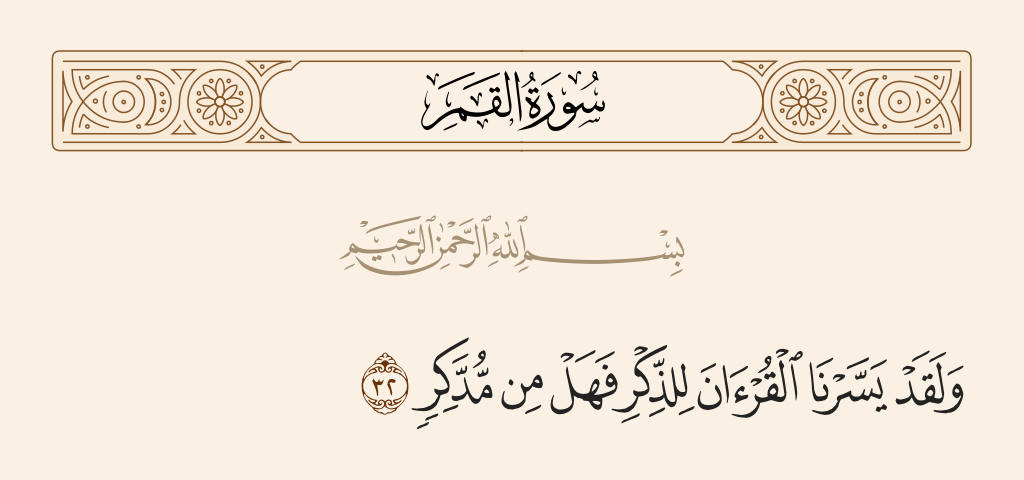 سُورَةُ القَمَرِ
بِسْمِ ٱللَّهِ ٱلرَّحْمَٰنِ ٱلرَّحِيمِ
وَلَقَدْ يَسَّرْنَا ٱلْقُرْءَانَ لِلذِّكْرِ فَهَلْ مِن مُّدَّكِرٍ ٣٢